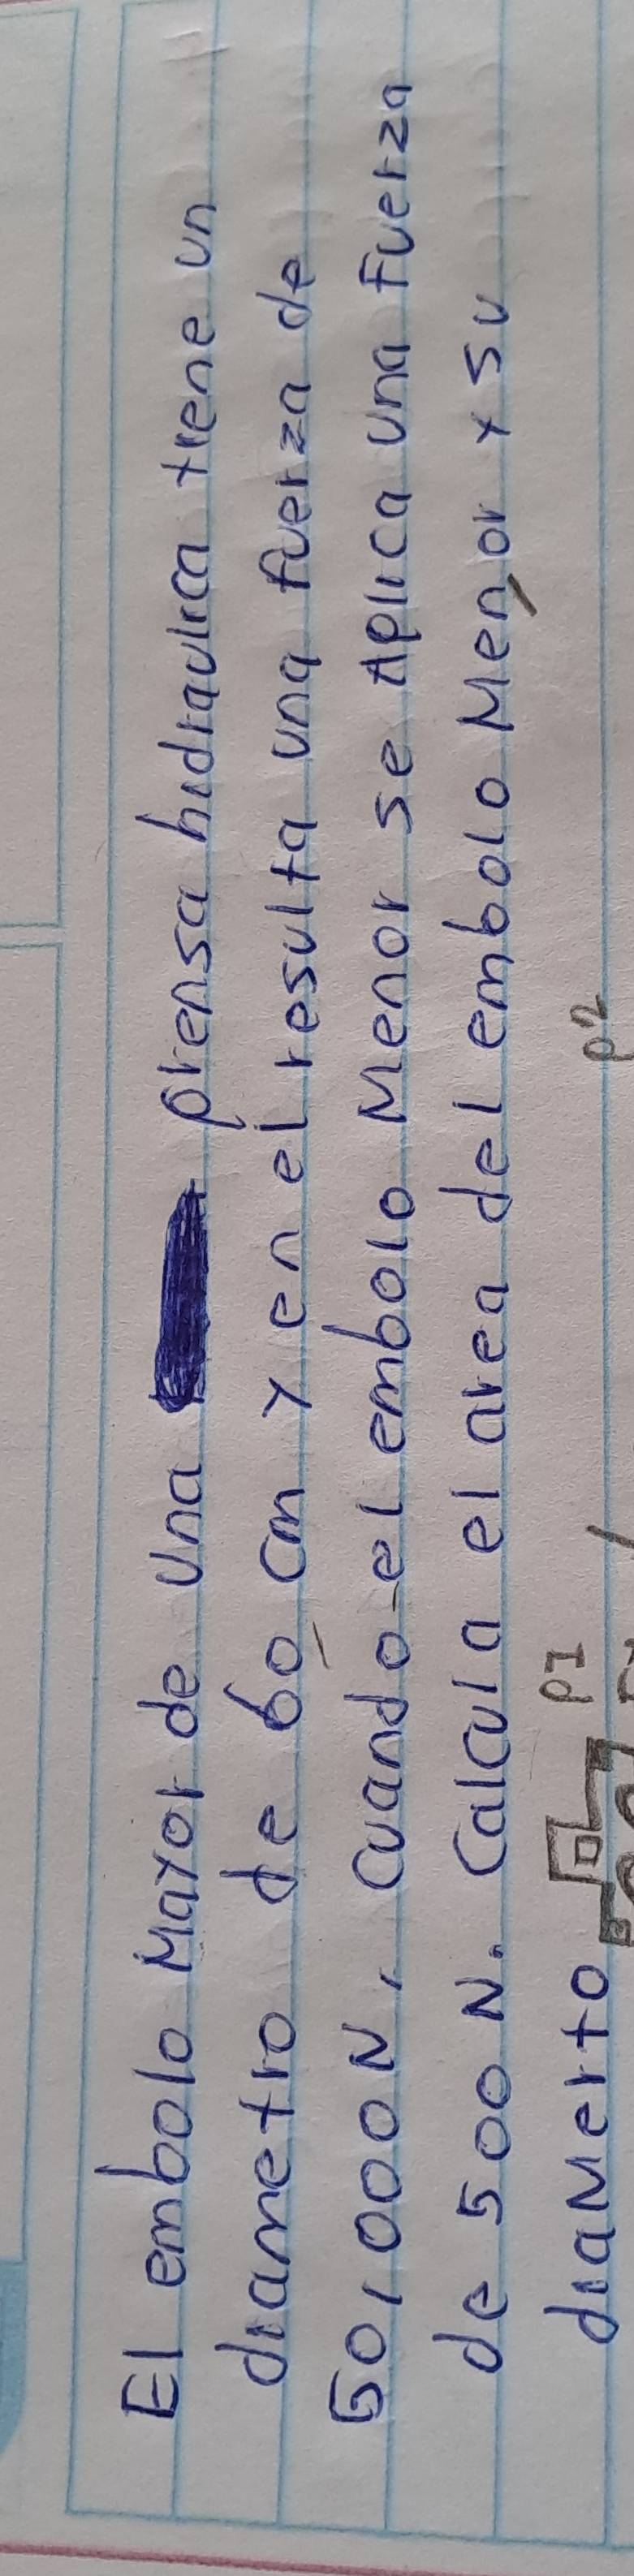 El embolo Mayor de una prensa hidraulica tiene un
diametro de 60 cm y en el resulta una fuerza de
50,000 N, cuando el embolo Menor se Aplica una fuerza
de 500 N. Calcula el area del embolo Menor y su
diaMerto P1 P2